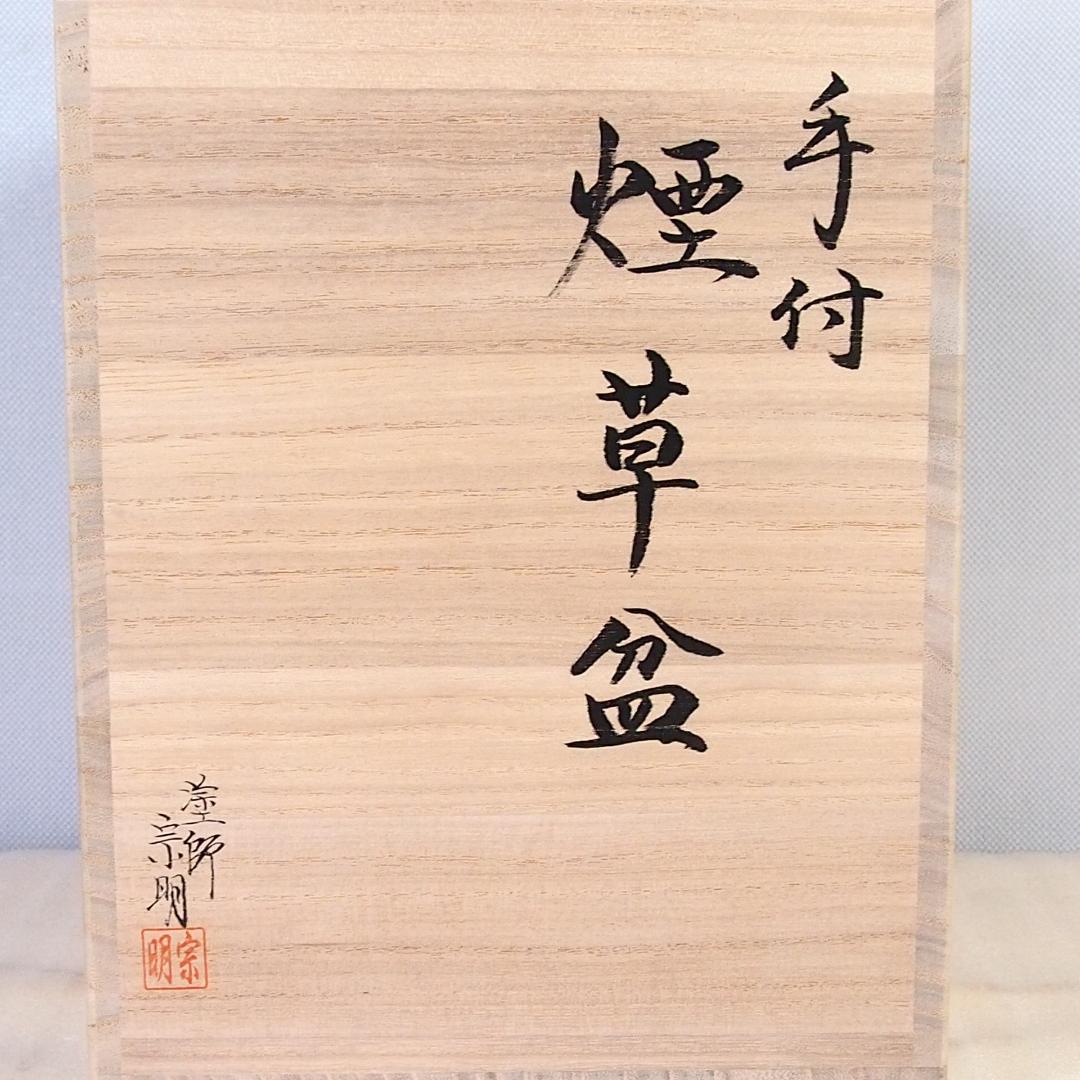 手付
煙草盆
塗師
宗明
宗明